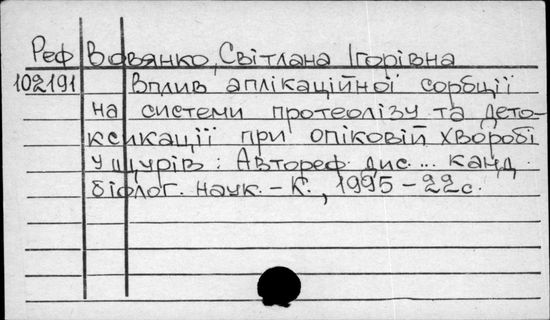 Реф Вовянко, Світлана Ігорівна
102191 Вплив аплікаційної сорбції
на системи протеолізу та дето-
ксикації при опіковій хворобі
у щурів : Автореф. дис. ... канд.
біолог. наук. – К., 1995 – 22с.